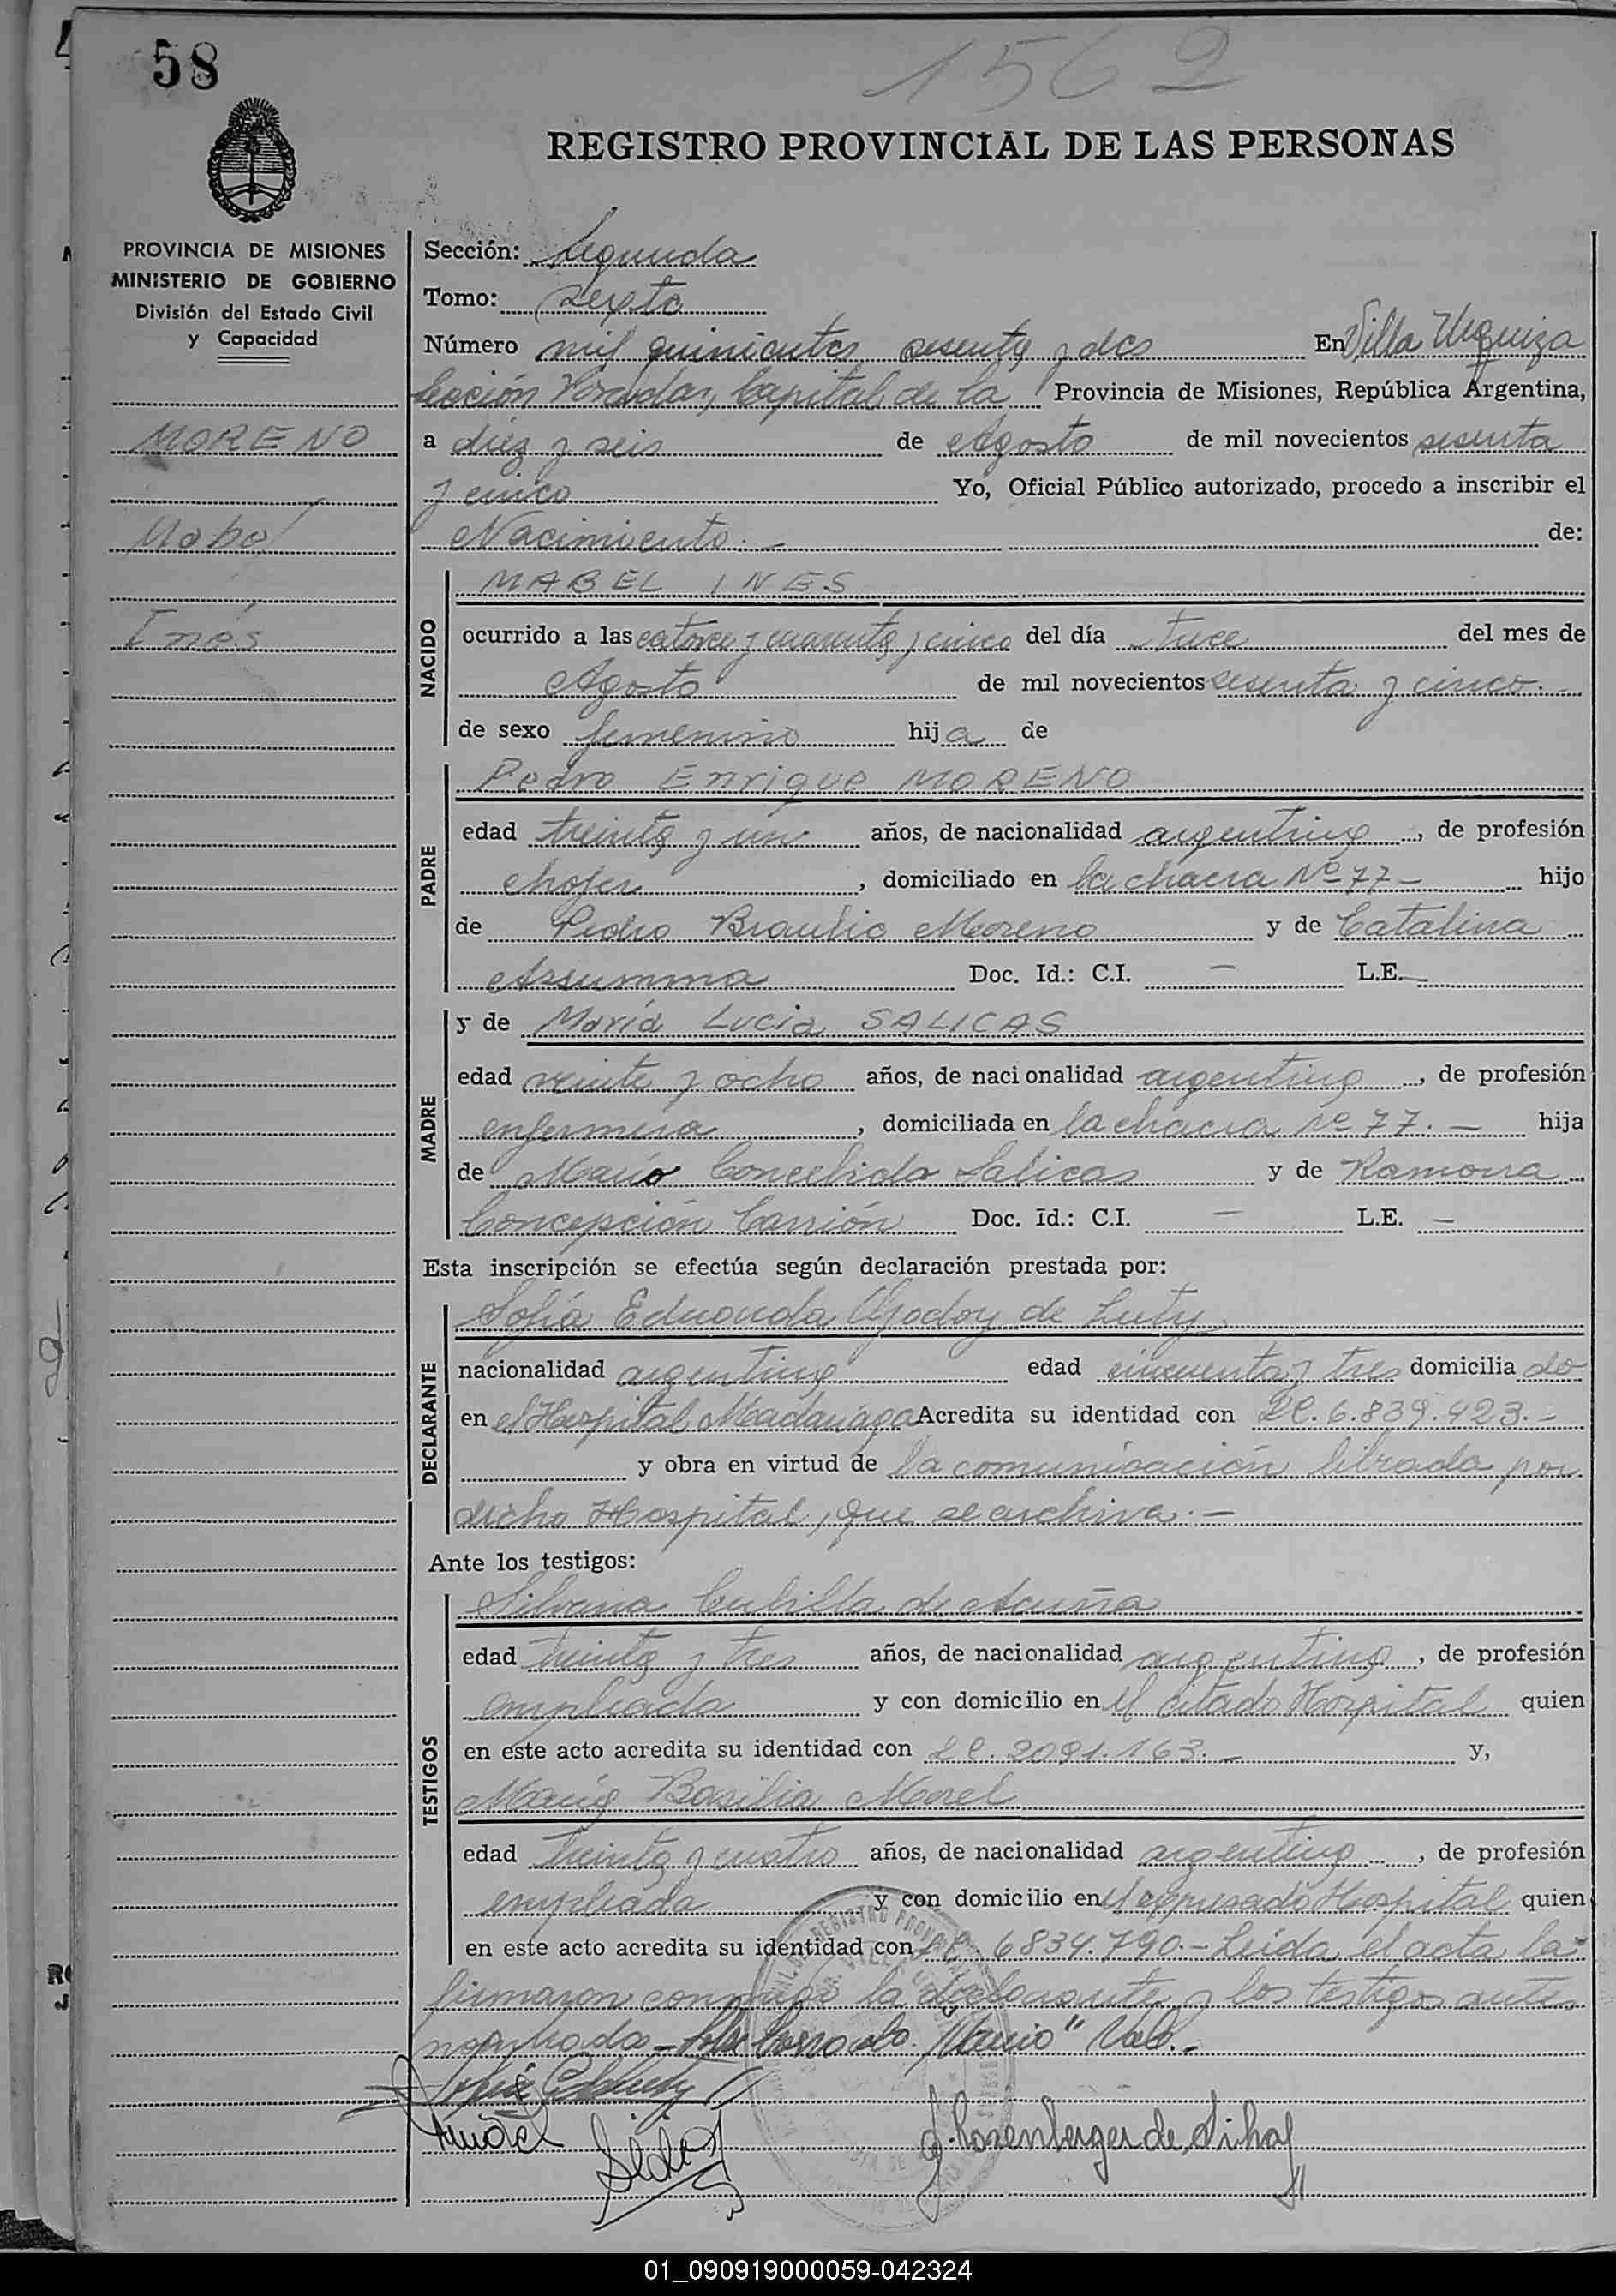 58
1562
REGISTRO PROVINCIAL DE LAS PERSONAS
PROVINCIA DE MISIONES
MINISTERIO DE GOBIERNO
División del Estado Civil
y Capacidad
MORENO
Mabel
Inés
Sección: Segunda
Tomo: Sexto
Número mil quinientos sesenta y dos En Villa Urquiza
Sección Posadas, Capital de la Provincia de Misiones, República Argentina,
a diez y seis de Agosto de mil novecientos sesenta
y cinco Yo, Oficial Público autorizado, procedo a inscribir el
Nacimiento.- de:
NACIDO
MABEL INES
ocurrido a las catorce y cuarenta y cinco del día trece del mes de
Agosto de mil novecientos sesenta y cinco.-
de sexo femenino hija de
PADRE
Pedro Enrique MORENO
edad treinta y un años, de nacionalidad argentina, de profesión
chofer, domiciliado en la chacra Nº 77- hijo
de Pedro Braulio Moreno y de Catalina
Assumma Doc. Id.: C.I. - L.E. -
MADRE
y de María Lucia SALICAS
edad veinte y ocho años, de nacionalidad argentina, de profesión
enfermera, domiciliada en la chacra Nº 77.- hija
de Mario Salicas y de Ramona
Concepción Carrión Doc. Id.: C.I. - L.E. -
Esta inscripción se efectúa según declaración prestada por:
DECLARANTE
Sofía Eduarda Godoy de Luty
nacionalidad argentina edad cincuenta y tres domiciliado
en el Hospital Madariaga Acredita su identidad con LC. 6.839.423.-
y obra en virtud de la comunicación librada por
dicho Hospital, que se archiva.-
Ante los testigos:
TESTIGOS
Silvana Cubilla de Acuña
edad treinta y tres años, de nacionalidad argentina, de profesión
empleada y con domicilio en el citado Hospital quien
en este acto acredita su identidad con LC. 2091.163.- y,
María Basilia Morel
edad treinta y cuatro años, de nacionalidad argentina, de profesión
empleada y con domicilio en el expresado Hospital quien
en este acto acredita su identidad con 6834.790.- Leida el acta la
firmaron conmigo la declarante y los testigos antes
"Mario" Vale.-
01_090919000059-042324